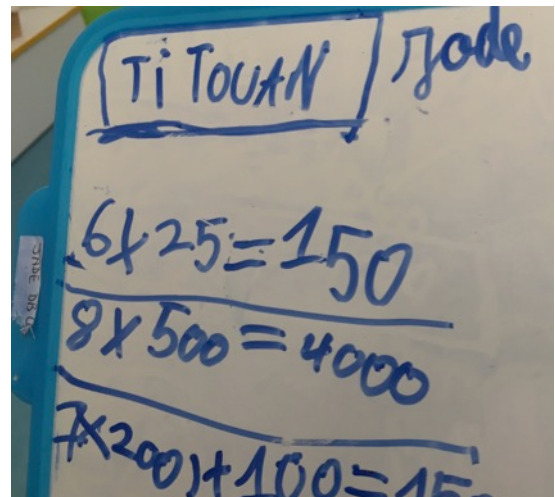 TiTOUAN Jade
6x25=150
8x500=4000
7x200)+100=15